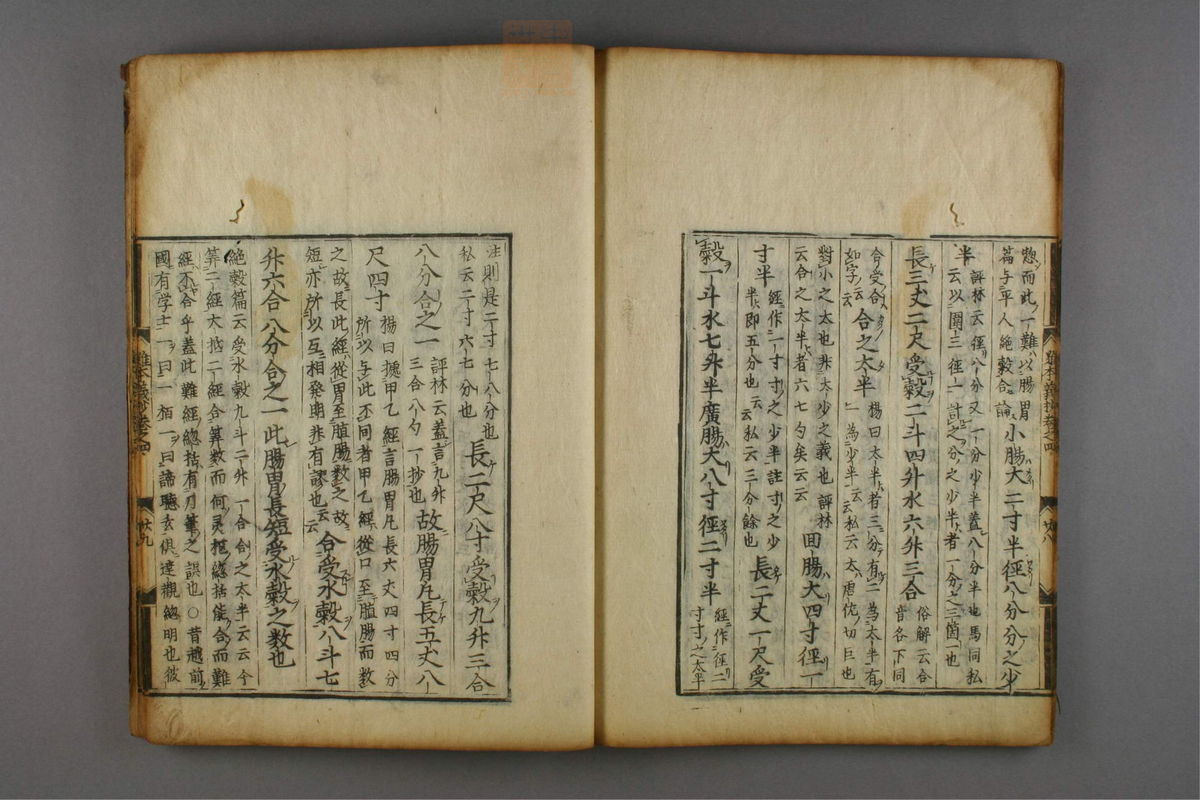 懲而此ノ一難ハ以腸胃
篇与平人絶穀合論
小腸大二寸半径八分分之少
半
評林云径八分又一分少半蓋八分半也馬同私
云以圍三径一計之分之少半者一分之三箇一也
長三丈二尺受穀二斗四升水六升三合
俗解云合
音各下同
令受合
如字云云
合之太半
楊曰太半者三分有二為太半有
一為少半云云私云太唐佐切巨也
對小之太也非太少之義也評林
云合之太半者六七勺矣云云
回腸大四寸径一
寸半
経作一寸寸之少半註寸之少
半即五分也云云私云三分餘也
長二丈一尺受
穀一斗水七升半廣腸大八寸径二寸半
経作径二
寸寸之太半
註則是二寸七八分也
私云二寸六七分也
長二尺八寸受穀九升三合
八分合之一
評林云蓋言九升
三合八勺一抄也
故腸胃凡長五丈八
尺四寸
楊曰據甲乙経言腸胃凡長六丈四寸四分
所以与此不同者甲乙経從口至腸而数
之故長此経從胃至腸数之故
短亦所以互相発明非有謬也云云
合受水穀八斗七
升六合八分合之一此腸胃長短受水穀之数也
絶穀篇云受水穀九斗二升一合合之太半云云今
算二経大抵二経合算数而何灵枢総括能合而難
経不合乎蓋此難経総括有刀筆之誤也○昔越前
國有学士一曰一栢一曰諦聴玄倶達観絡明也彼
難本義抄巻之四
廿八
難本義抄巻之四
廿九